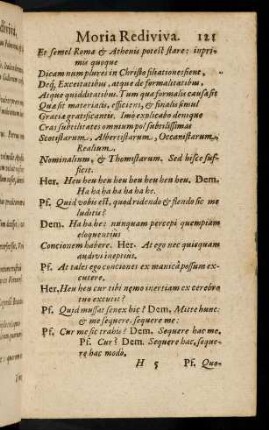 Moria Rediviva. 121
Et semel Romæ & Athenis potest stare: inpri-
mis quoque
Dicam num plures in Christo filiationes sient,
Deq́; Excëitatibus, atque de formalitatibus,
Atque quidditatibus. Tum qua formalis causa sit
Qua sit materialis, efficiens, & finalis simul
Gratiæ gratificantis. Imò explicabo demque
Cras subtilitates omnium pol subtilissimas
Scotistarum, Albertistarum, Occanistarum,
Realium,
Nominalium, & Thomistarum. Sed hisce suf-
ficit.
Her. Heu heu heu heu heu heu heu heu. Dem.
Ha ha ha ha ha ha he.
Pf. Quid vobis est, quod ridendo & flendo sic me
luditis?
Dem. Ha ha he: nunquam percepi quempiam
eloquentius
Concionem habere. Her. At ego nec quiaquam
audivi ineptius.
Pf. At tales ego conciones ex manicâ possum ex-
cutere.
Her. Heu heu cur tibi nemo inertiam ex cerebro
tus excutit?
Pf. Quid mussat senex hic? Dem. Mitte hunc:
& me sequere. sequere me:
Pf. Cur me sic trahis? Dem. Sequere hac me.
Pf. Cur? Dem. Sequere hac, seque-
re hac modò,
H 5 Pf. Quo-